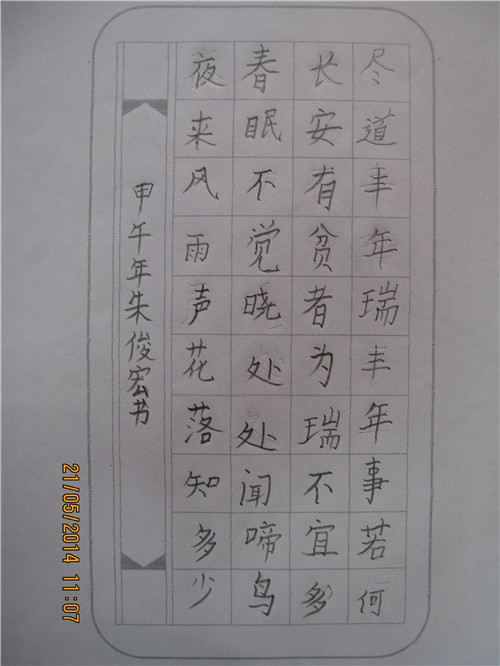 尽道丰年瑞丰年事若何
长安有贫者为瑞不宜多
春眠不觉晓处处闻啼鸟
夜来风雨声花落知多少
甲午年朱俊宏书
21/05/2014 11:07